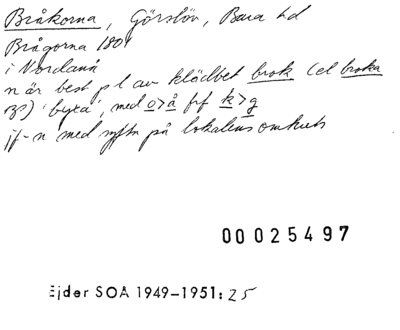 Bråkorna, Görslöv, Bara hd
Brågorna 1801
i Nordanå
n är best pl av klädbet brok (el broka
BP) 'byxa', med o>å frf k>g
jf-n med syftn på lokalens omkrets
00025497
Ejder SOÅ 1949–1951: 25